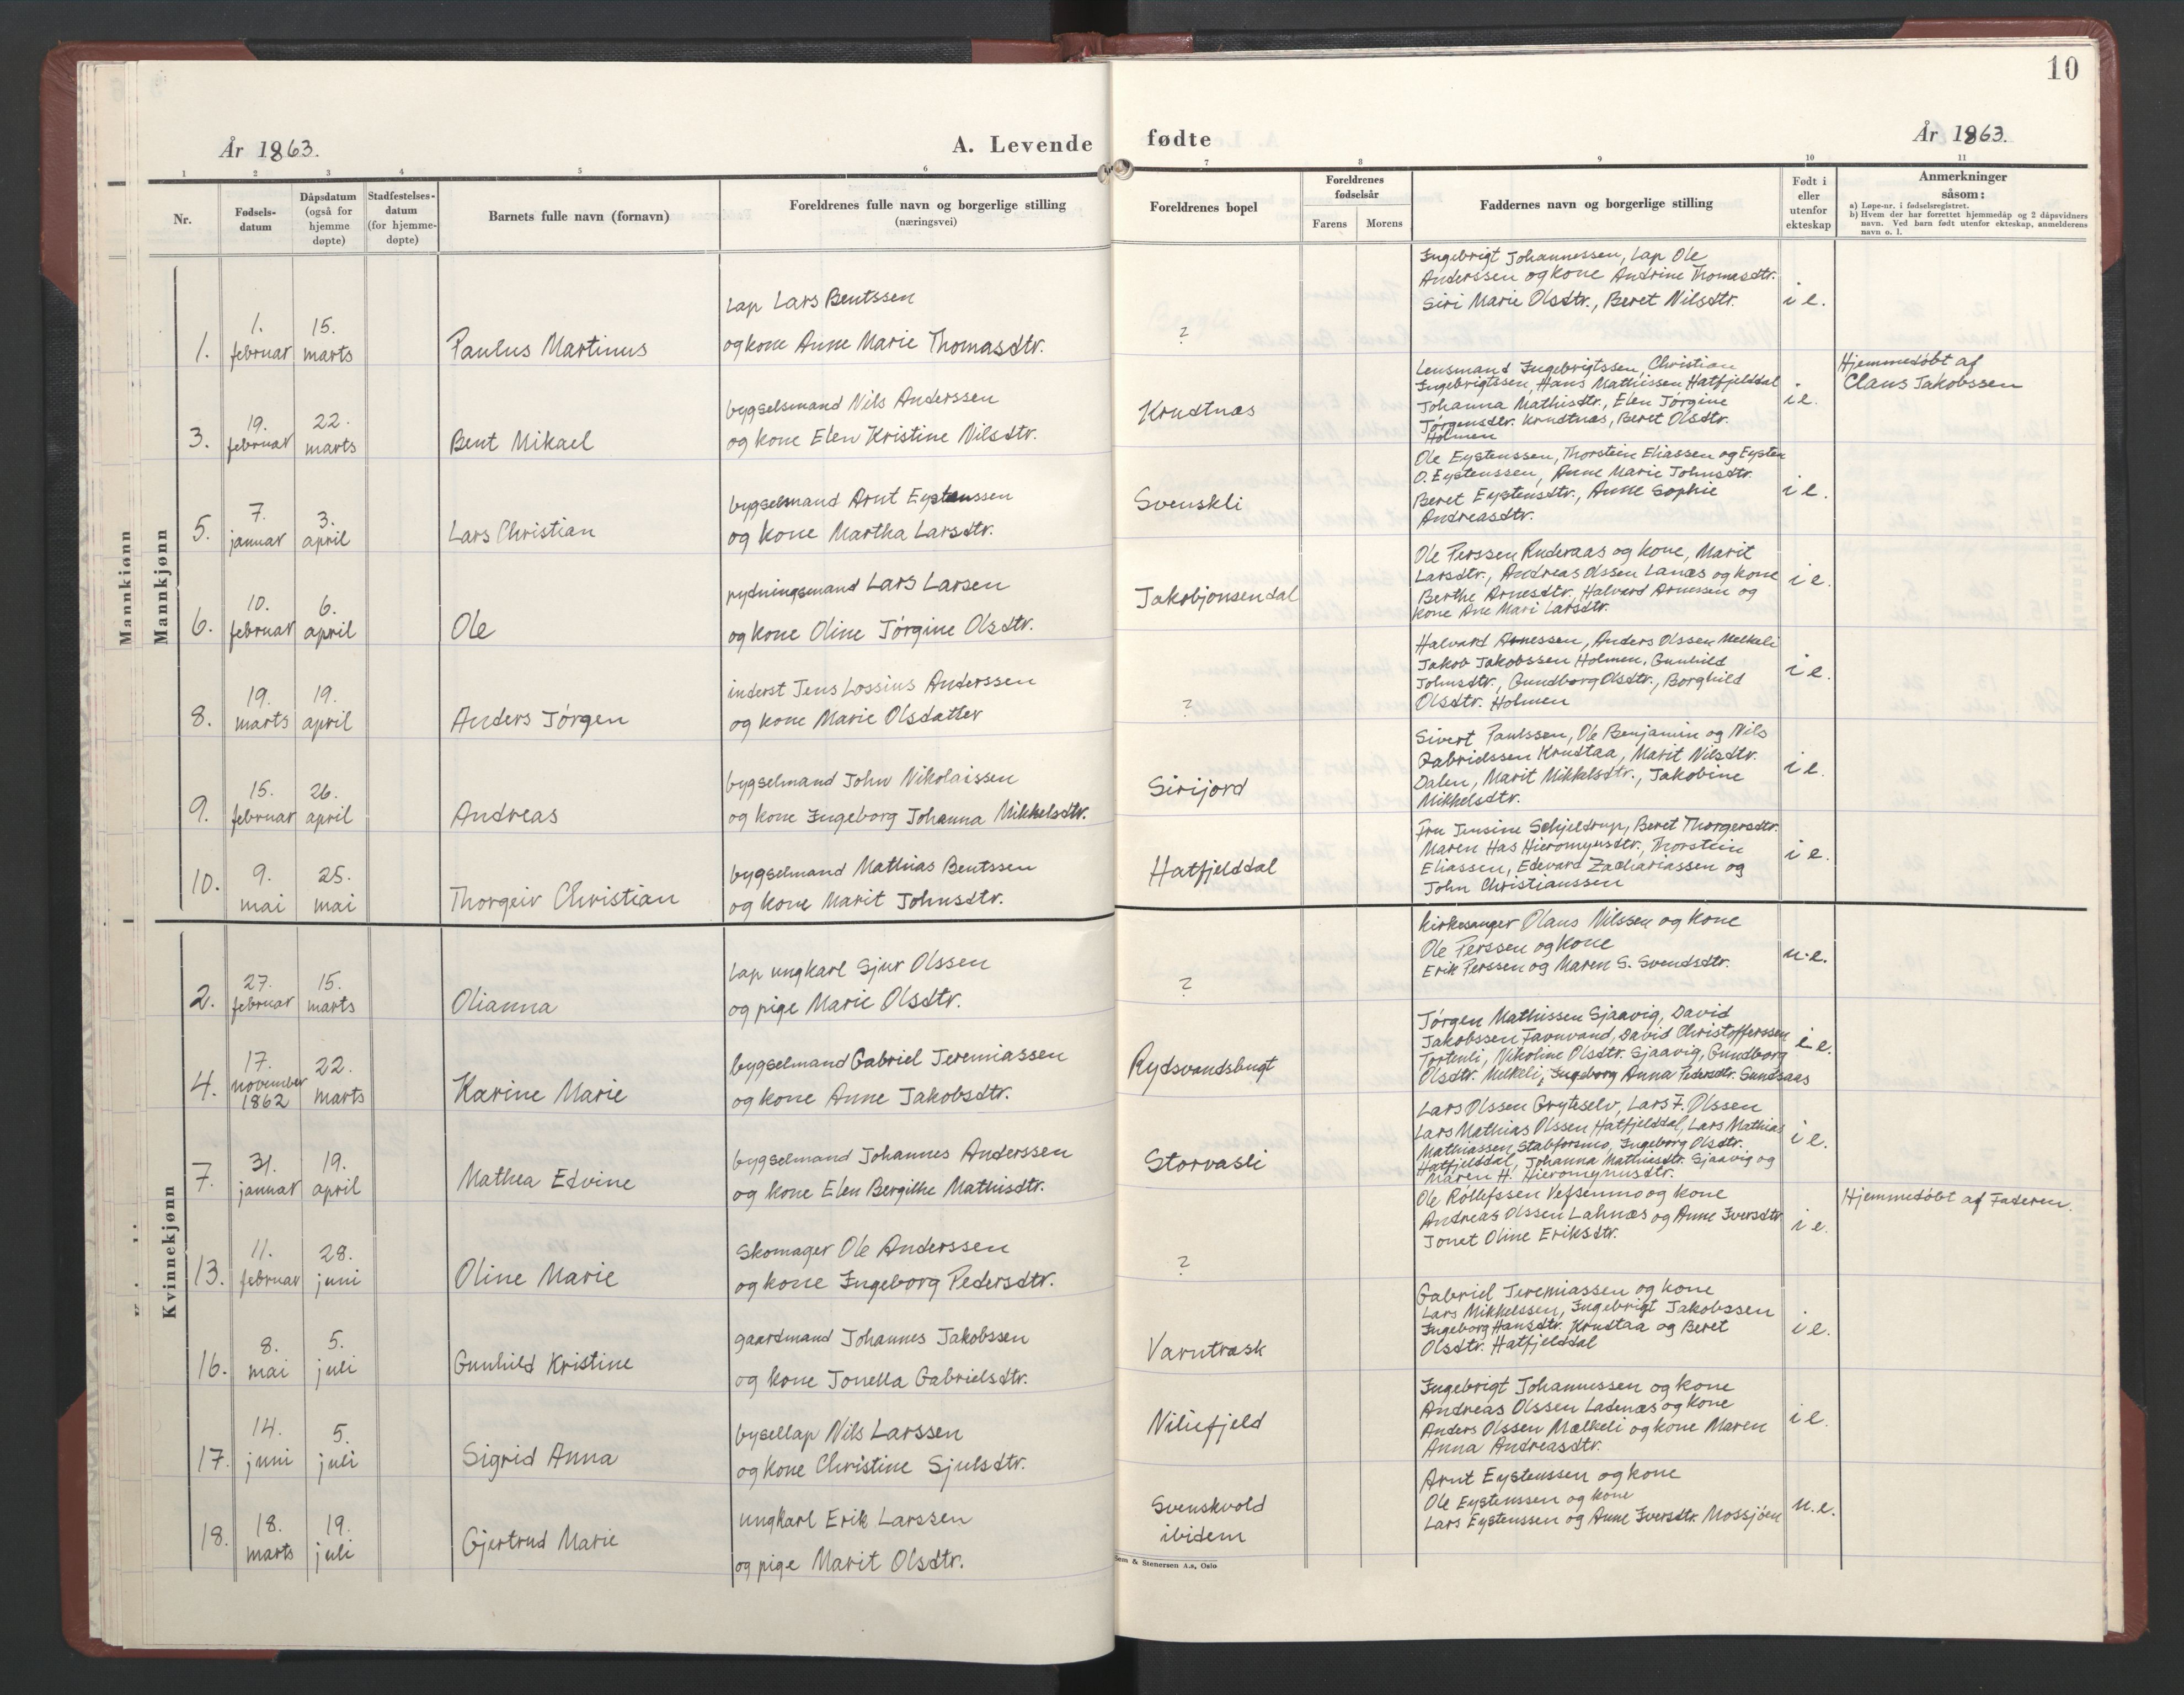 10
År 1863.
A. Levende
fødte
År 1863.
1 2 3 4 5 6 7 8 9 10 11
Nr.
Fødsels-
datum
Dåpsdatum
(også for
hjemme
døpte)
Stadfestelses-
datum
(for hjemme-
døpte)
Barnets fulle navn (fornavn)
Foreldrenes fulle navn og borgerlige stilling
(næringsvei)
Foreldrenes bopel
Foreldrenes
fødselsår
Farens Morens
Faddernes navn og borgerlige stilling
Født i
eller
utenfor
ekteskap
Anmerkninger
såsom:
a) Løpe-nr. i fødselsregistret.
b) Hvem der har forrettet hjemmedåp og 2 dåpsvidners
navn. Ved barn født utenfor ekteskap, anmelderens
navn o. l.
Mannkjønn
Mannkjønn
1.
1.
februar
15.
marts
Paulus Martinus
Lap Lars Bentssen
og kone Anne Marie Thomasdtr.
?
Ingebrigt Johannessen, Lap Ole
Anderssen og kone Andrine Thomasdtr.
Siri Marie Olsdtr., Beret Nilsdtr.
i e.
3.
19.
februar
22.
marts
Bent Mikael
bygselsmand Nils Anderssen
og kone Elen Kristine Nilsdtr.
Krudtnæs
Lensmand Ingebrigtssen, Christian
Ingebrigtssen, Hans Mathissen Hatfjelddal
Johanna Mathisdtr., Elen Jørgine
Jørgensdtr. Krudtnæs, Beret Olsdtr.
Holmen
i e.
Hjemmedøbt af
Claus Jakobssen
5.
7.
januar
3.
april
Lars Christian
bygselsmand Arnt Eystenssen
og kone Martha Larsdtr.
Svenskli
Ole Eystenssen, Thorstein Eliassen og Eysten
O. Eystenssen, Anne Marie Johnsdtr.
Beret Eystensdtr., Anne Sophie
Andreasdtr.
i e.
6.
10.
februar
6.
april
Ole
rydningsmand Lars Larsen
og kone Oline Jørgine Olsdtr.
Jakobjonsendal
Ole Perssen Ruderaas og kone, Marit
Larsdtr., Andreas Olssen Lanæs og kone
Berthe Arnesdtr., Halvard Arnessen og
kone Ane Mari Larsdtr.
i e.
8.
19.
marts
19.
april
Anders Jørgen
inderst Jens Lossius Anderssen
og kone Marie Olsdatter
?
Halvard Arnessen, Anders Olssen Melkeli
Jakob Jakobssen Holmen, Gunhild
Johnsdtr., Gundborg Olsdtr., Borghild
Olsdtr. Holmen
i e.
9.
15.
februar
26.
april
Andreas
bygselmand John Nikolaissen
og kone Ingeborg Johanna Mikkelsdtr.
Sirijord
Sivert Paulssen, Ole Benjamin og Nils
Gabrielssen Krudtaa, Marit Nilsdtr.
Dalen, Marit Mikkelsdtr., Jakobine
Mikkelsdtr.
i e.
10.
9.
mai
25.
mai
Thorgeir Christian
bygselmand Mathias Bentssen
og kone Marit Johnsdtr.
Hatfjelddal
Fru Jensine Schjeldrup, Beret Thorgersdtr.
Maren Has Hieromynsdtr., Thorstein
Eliassen, Edevard Zachariassen og
John Christianssen
i e.
Kvinnekjønn
2.
27.
februar
15.
marts
Olianna
Lap ungkarl Sjur Olssen
og pige Marie Olsdtr.
?
Kirkesanger Olaus Nilssen og kone
Ole Perssen og kone
Erik Perssen og Maren S. Svendsdtr.
u. e.
4.
17.
november
1862
22.
marts
Karine Marie
bygselmand Gabriel Jeremiassen
og kone Anne Jakobsdtr.
Rydsvandsbugt
Jørgen Mathissen Sjaavig, David
Jakobssen Favnvand, David Christofferssen
Tortenli, Nikoline Olsdtr. Sjaavig, Gundborg
Olsdtr. Melkeli, Ingeborg Anna Pedersdtr. Sundsaas
i e.
7.
31.
januar
19.
april
Mathea Edvine
bygselmand Johannes Anderssen
og kone Elen Bergithe Mathisdtr.
Storvasli
Lars Olssen Gryteselv, Lars J. Olssen
Lars Mathias Olssen Hatfjelddal, Lars Mathias
Mathiassen Stabforsmo, Ingeborg Olsdtr.
Hatfjelddal, Johanna Mathiasdtr. Sjaavig og
Maren H. Hieromynusdtr.
i e.
13.
11.
februar
28.
juni
Oline Marie
Skomager Ole Anderssen
og kone Ingeborg Pedersdtr.
?
Ole Rollefssen Vefsenmo og kone
Andreas Olssen Lahnæs og Anne Iversdtr
Jonet Oline Eriksdtr.
i e.
Hjemmedøbt af Faderen.
16.
8.
mai
5.
juli
Gunhild Kristine
gaardmand Johannes Jakobssen
og kone Jonella Gabrielsdtr.
Varntræsk
Gabriel Jeremiassen og kone
Lars Mikkelssen, Ingebrigt Jakobssen
Ingeborg Hansdtr. Krudtaa og Beret
Olsdtr. Hatfjelddal
i e.
17.
14.
juni
5.
juli
Sigrid Anna
bysellap Nils Larssen
og kone Christine Sjulsdtr.
Niliefjeld
Ingebrigt Johannessen og kone
Andreas Olssen Ladenæs og kone
Anders Olssen Mælkeli og kone Maren
Anna Andreasdtr.
i e.
18.
18.
marts
19.
juli
Gjertrud Marie
ungkarl Erik Larssen
og pige Marit Olsdtr.
Svenskvold
ibidem
Arnt Eystenssen og kone
Ole Eystenssen og kone
Lars Eystenssen og Anne Iversdtr. Mossjøen
u. e.
Sem & Stenersen A.s, Oslo